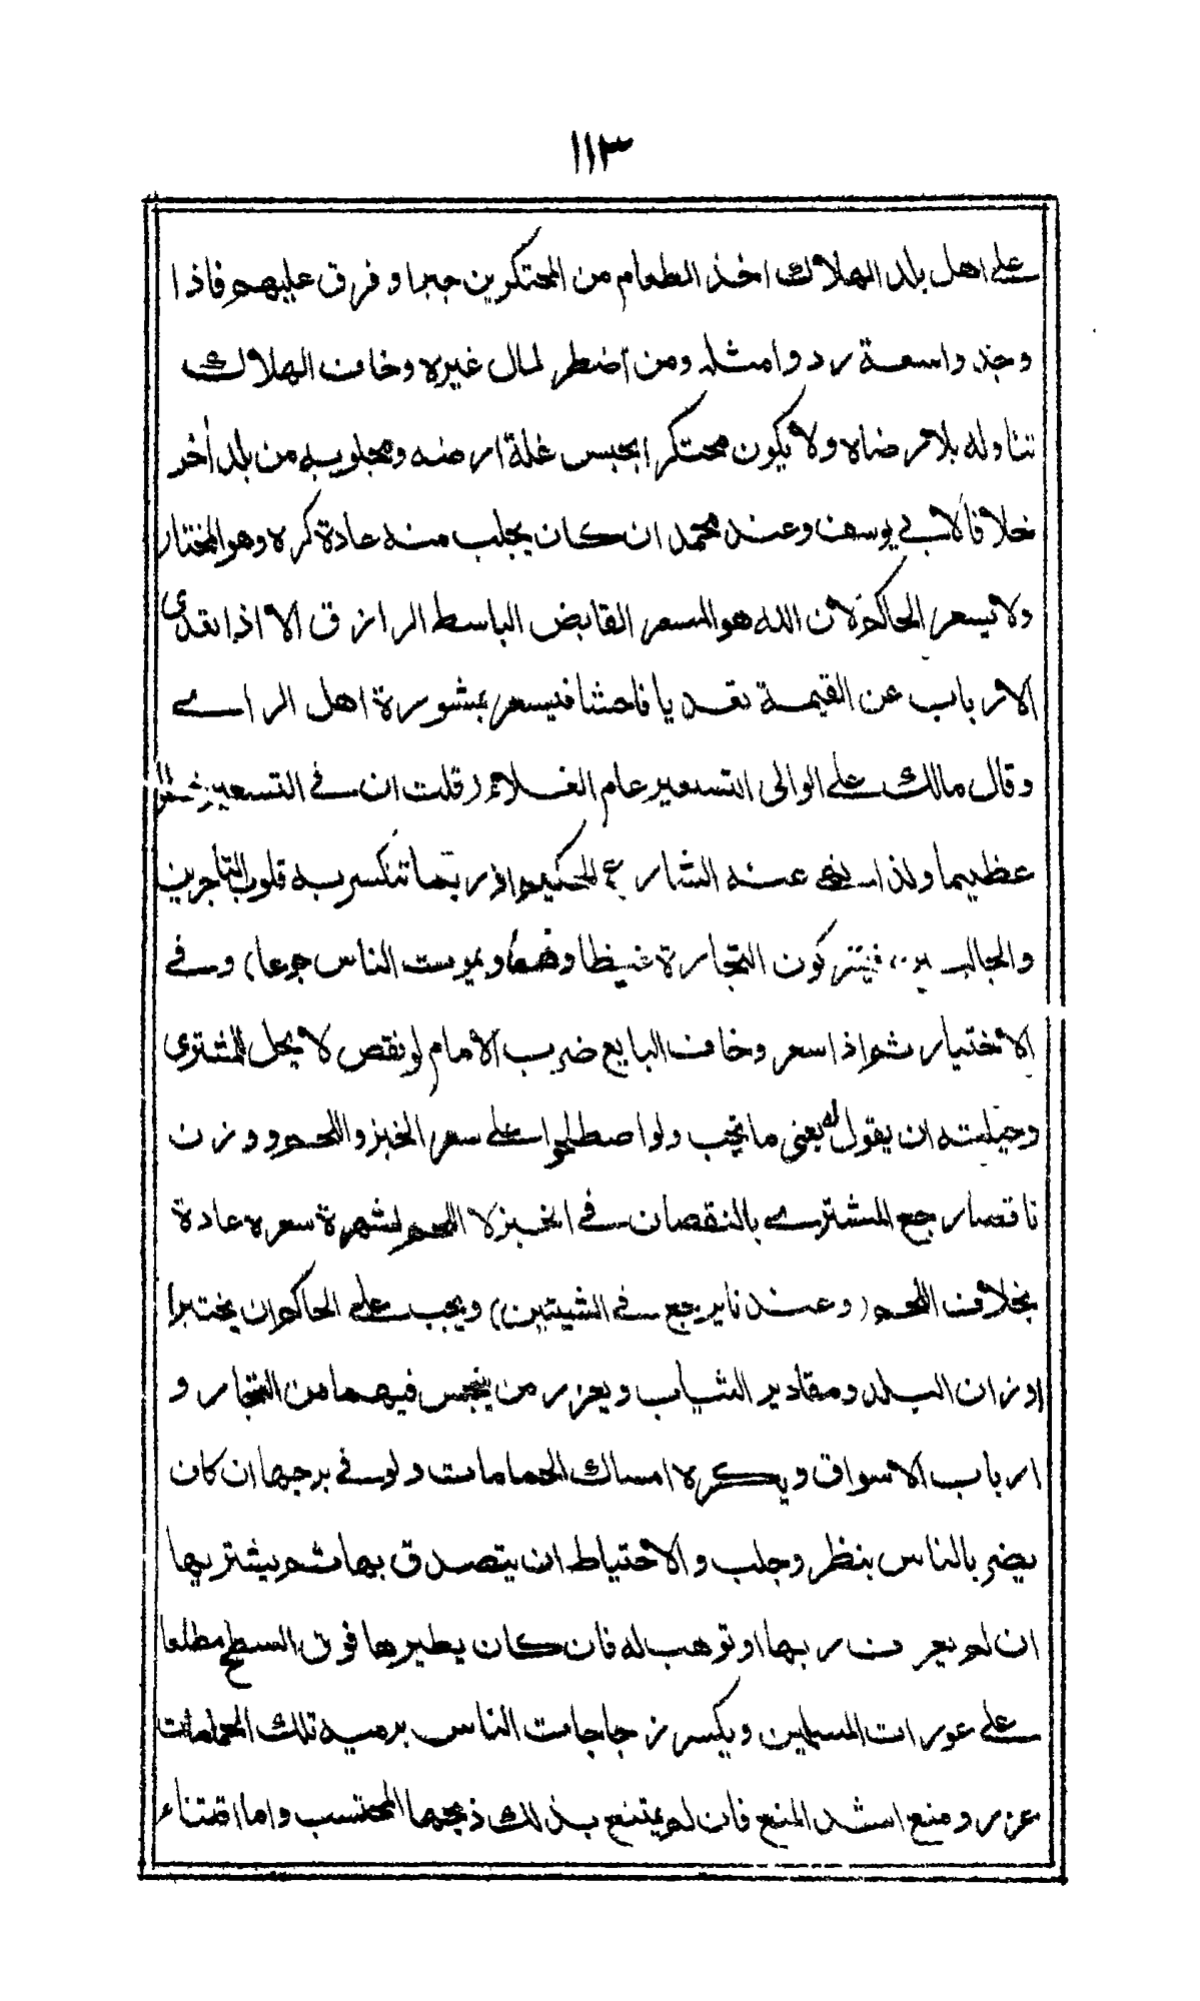 ١١٣
على اهل بلد الهلاك اخذ الطعام من المحتكرين جبرا وفرق عليهم فاذا
وجدوا سعة ردوا مثله ومن اضطر لمال غيره وخاف الهلاك
تناوله بلا رضاه ولا يكون محتكرا بحبس غلة ارضه ومجلوبه من بلد أخر
خلافا لابي يوسف وعند محمد ان كان يجلب منه عادة كره وهو المختار
ولا يسعر الحاكم لان الله هو المسعر القابض الباسط الرازق الا اذا تعدى
الارباب عن القيمة تعديا فاحشا فيسعر بمشورة اهل الراي
وقال مالك على الوالى التسعير عام الغلاء (قلت ان في التسعير خطرا
عظيما ولذا نهى عنه الشارع الحكيم اذ ربما تنكسر به قلوب التاجرين
والجالبين فيتركون التجارة غيظا وهما ويموت الناس جوعا) وفي
الاختيار ثم اذا سعر وخاف البايع ضرب الامام لو نقص لا يحل للمشترى
وحيلته ان يقول له بعنى ما تحب ولو اصطلحوا على سعر الخبز واللحم ووزن
ناقصا رجع المشترى بالنقصان في الخبز لا اللحم لشهرة سعره عادة
بخلاف اللحم (وعندنا يرجع في الشيئين) ويجب على الحاكم ان يختبر
اوزان البلد ومقادير الثياب ويعزر من يبخس فيهما من التجار و
ارباب الاسواق ويكره امساك الحمامات ولو في برجها ان كان
يضر بالناس بنظر وجلب والاحتياط ان يتصدق بها ثم يشتريها
ان لم يعرف ربها او توهب له فان كان يطيرها فوق السطح مطلعا
على عورات المسلمين ويكسر زجاجات الناس برميه تلك الحمامات
عزر ومنع اشد المنع فان لم يمتنع بذلك ذبحها المحتسب واما اقتناء